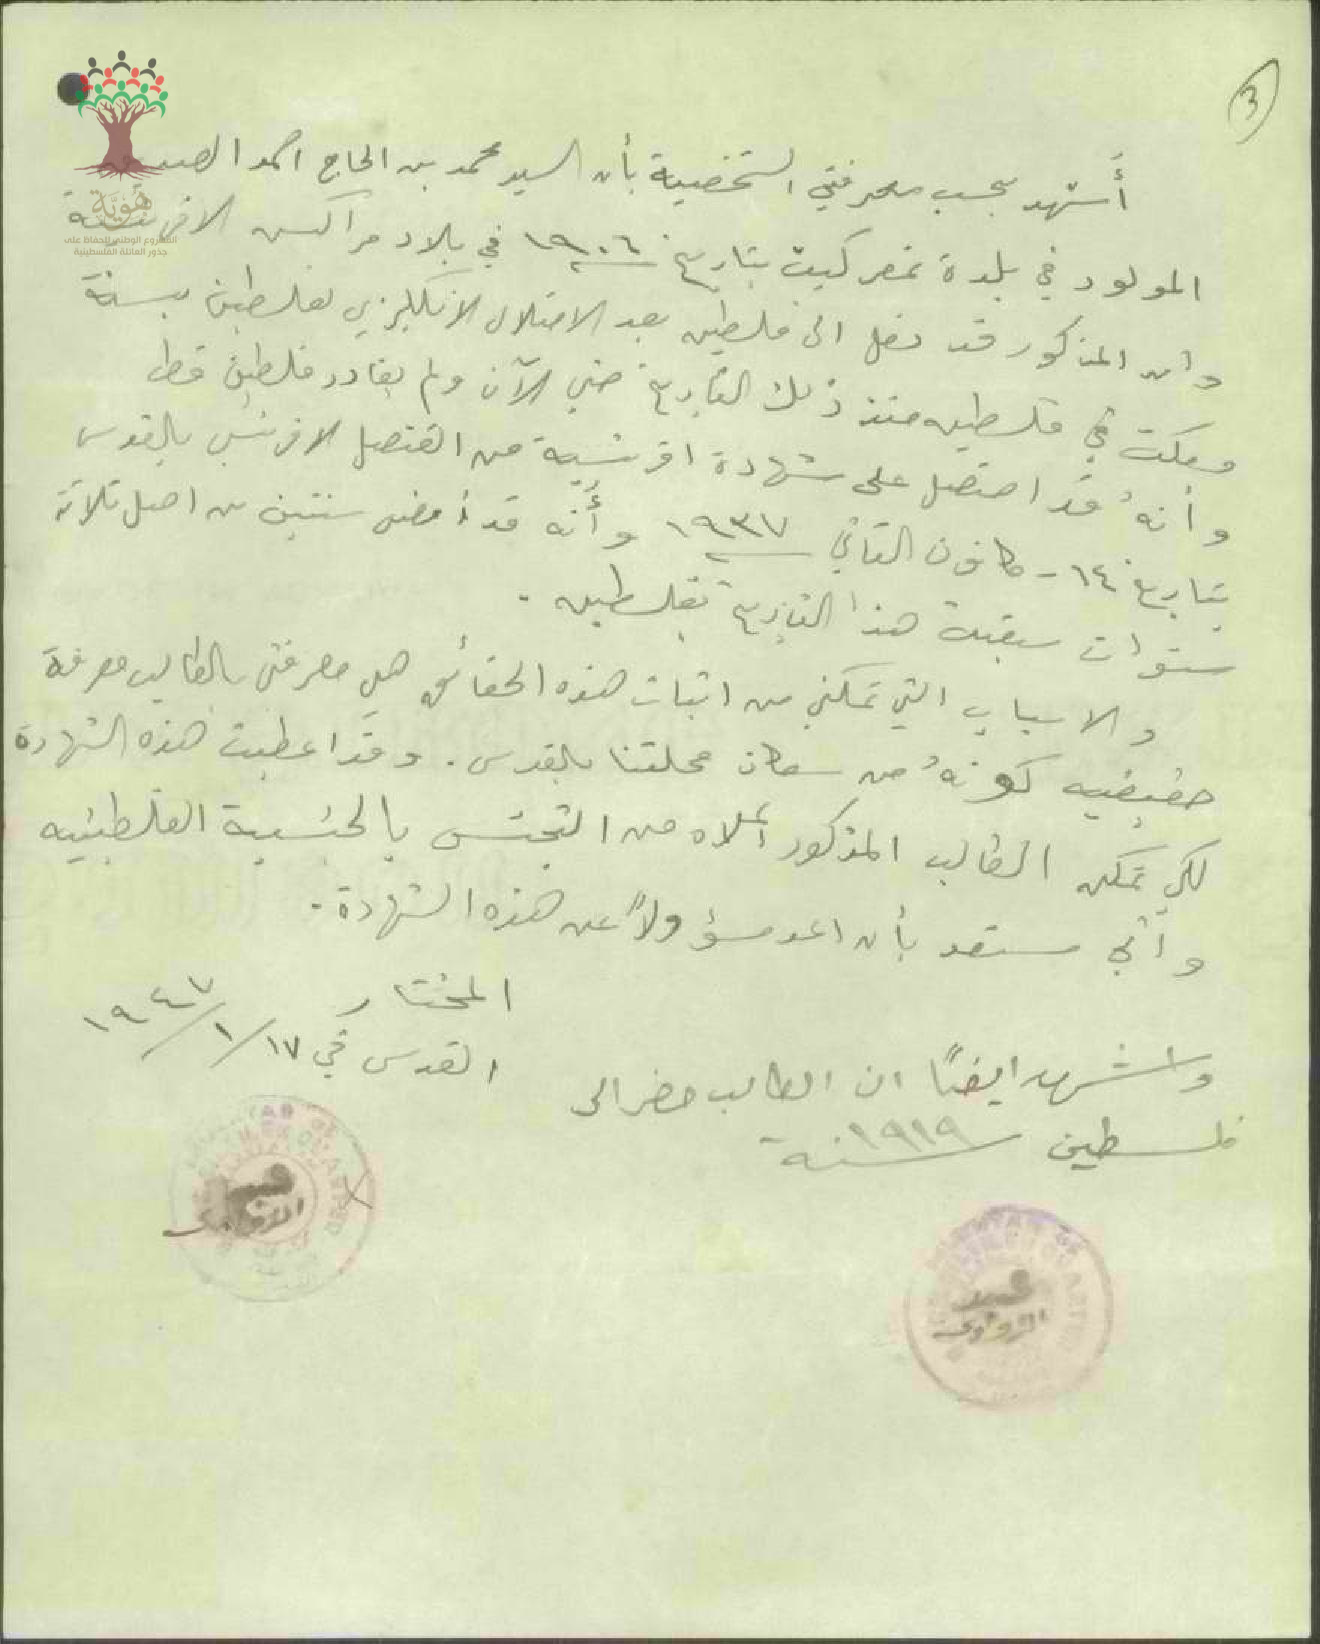 3
أشهد بحسب معرفتي الشخصية بأن السيد محمد بن الحاج احمد
المولود في بلدة بتاريخ ١٩٠٦ في بلاد مراكس الافرنسية
وان المذكور قد دخل الى فلسطين بعد الاحتلال الانكليزي لفلسطين بسنة
ومكث في فلسطين منذ ذلك التاريخ حتى الآن ولم يغادر فلسطين قط
وأنهُ قد استحصل على شهادة افرنسية من القنصل الافرنسي بالقدس
بتاريخ ١٤ - كانون الثاني ١٩٣٧ وأنه قد أمضى سنتين من اصل ثلاثة
سنوات سبقت هذا التاريخ بفلسطين .
والاسباب التي تمكنني من اثبات هذه الحقائق هي معرفتي بالطالب معرفة
حقيقيه كونهُ من سكان محلتنا بالقدس . وقد اعطيت هذه الشهادة
لكي تمكن الطالب المذكور اعلاه من التجنس بالجنسية الفلسطينيه
وأني مستعد بأن اعد مسؤولاً عن هذه الشهادة .
المختار
القدس في ١٧/١/١٩٤٧
واشهد ايضًا ان الطالب حضر الى
فلسطين سنة ١٩١٩
هَوِيَّة
المشروع الوطني للحفاظ على
جذور العائلة الفلسطينية